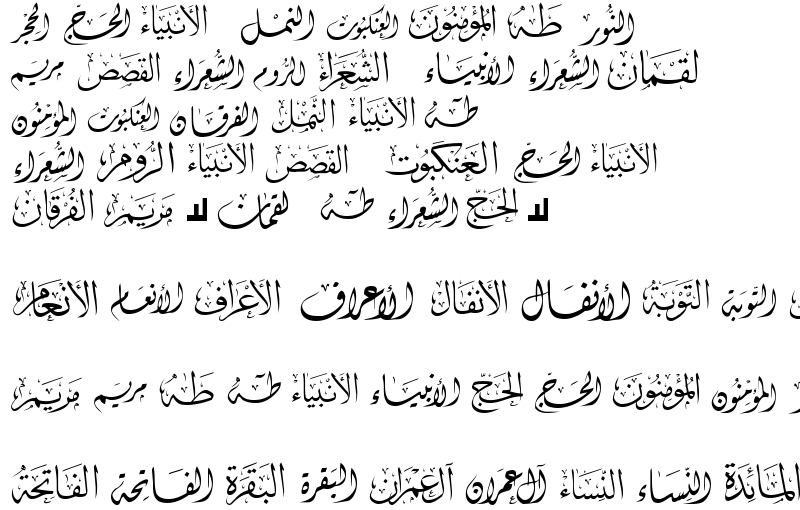 النُّور طَهُ المُؤْمِنُونَ العنكبوت النمل الأَنْبِيَاء الحَجّ الحِجْر
لُقْمَان الشُّعَرَاء الأنبياء الشُّعَرَاء الرُّوم الشُّعَرَاء القَصَص مريم
طَهُ الأَنْبِيَاء النَّمْل الفرقان العنكبوت المؤمنون
الأَنْبِيَاء الحَجّ العَنكَبُوت القَصَص الأَنْبِيَاء الرُّوم الشُّعَرَاء
الحَجّ الشُّعَرَاء طَهُ لقمان مَرْيَم الفُرْقَان
التَّوبَة التَّوْبَة الأنفال الأَنفَال الأعراف الأَعْرَاف الأنعام الأَنْعَام
المؤمنون المُؤْمِنُونَ الحَجّ الحَجّ الأنبياء الأَنْبِيَاء طَهُ طَهُ مريم مَرْيَم
المَائِدَة النِّسَاء النِّسَاء آل عِمرَان آل عِمْرَان البَقَرَة البَقَرَة الفَاتِحَة الفَاتِحَةُ